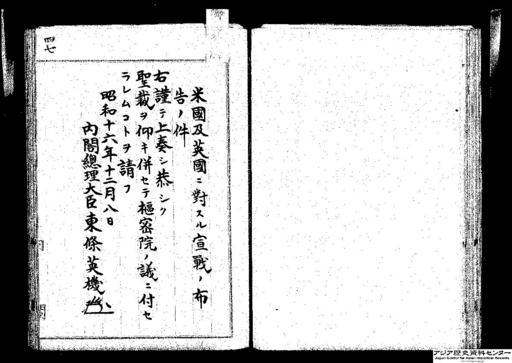 四七
米國及英國ニ對スル宣戰ノ布
告ノ件
右謹テ上奏シ恭シク
聖裁ヲ仰キ併セテ樞密院ノ議ニ付セ
ラレムコトヲ請フ
昭和十六年十二月八日
内閣總理大臣東條英機
アジア歴史資料センター
Japan Center for Asian Historical Records